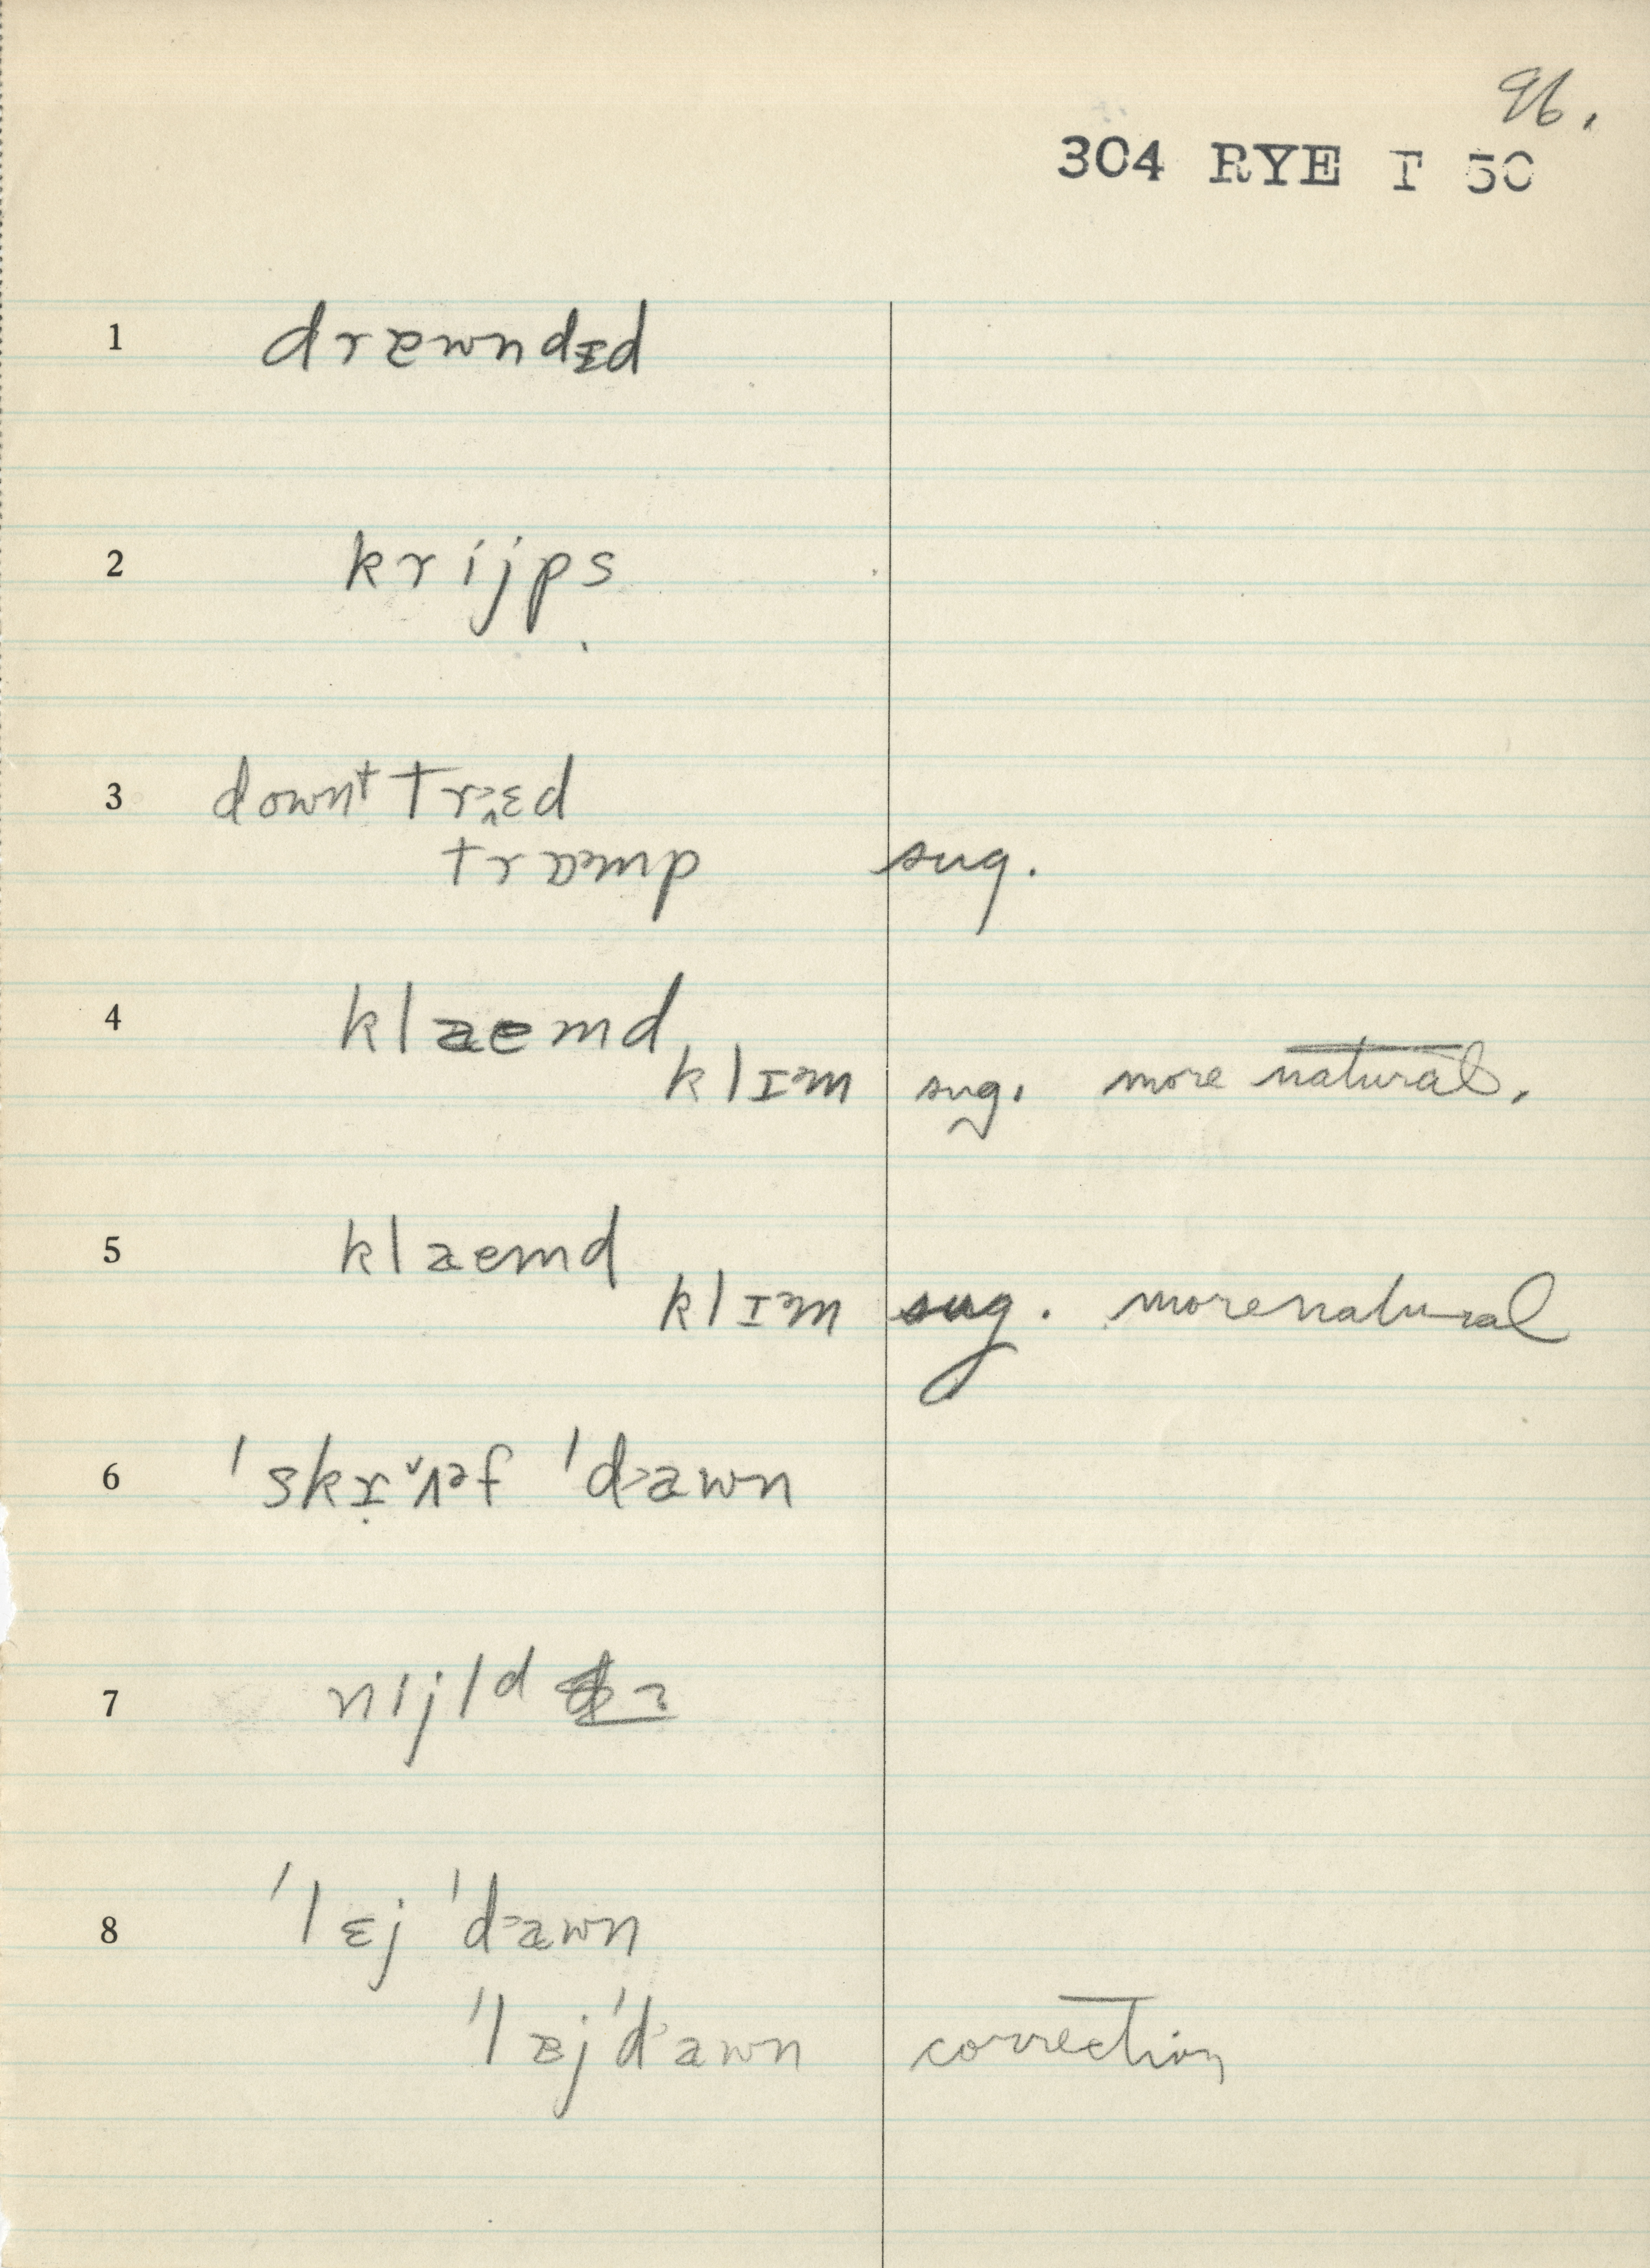 96.
304 RYE T 50
1 dræwndɪd
2 krijps
3 downt trɛd
tramp sug.
4 klaemd
klɪəm sug. more natural.
5 klaemd
klɪəm sug. more natural
6 'skrʌəf 'dawn
7 nijld
8 'lɛj 'dæwn
'læj 'dawn correction